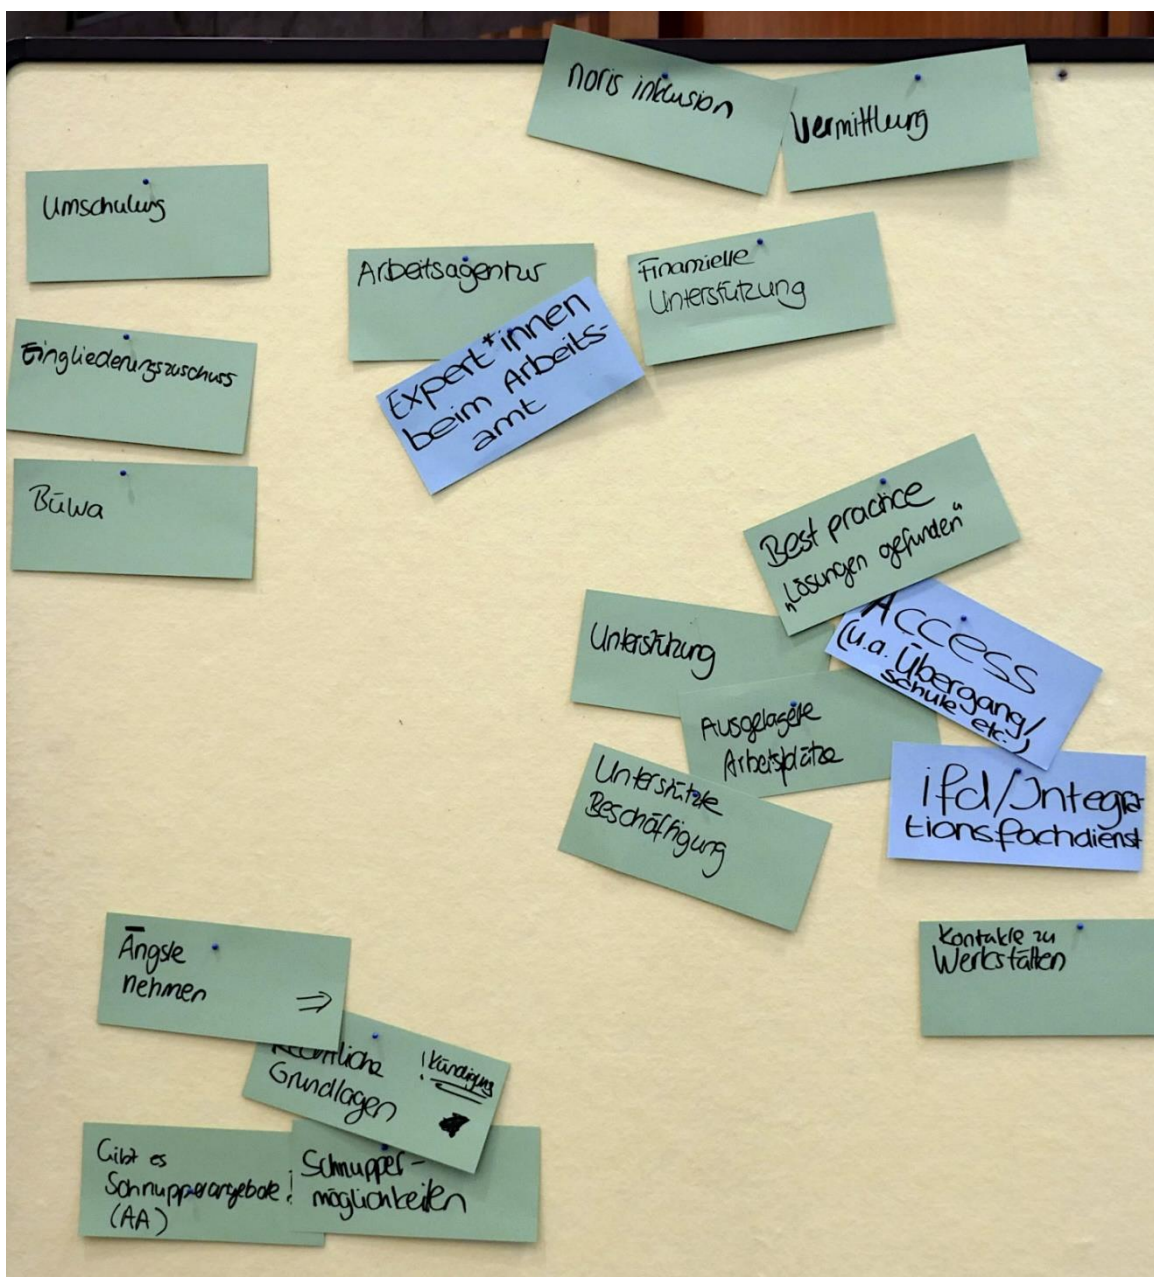 noris inklusion
Vermittlung
Umschulung
Arbeitsagentur
Finanzielle
Unterstützung
Expert*innen
beim Arbeits-
amt
Eingliederungszuschuss
Büwa
Best practice
„Lösungen gefunden“
Unterstützung
Access
(u.a. Übergang/
Schule etc.)
Ausgelagerte
Arbeitsplätze
Unterstützte
Beschäftigung
ifd/Integra-
tionsfachdienst
Kontakte zu
Werkstätten
Ängste
nehmen ⇒
Rechtliche
Grundlagen
! Kündigung
Gibt es
Schnupperangebote
(AA)
Schnupper-
möglichkeiten